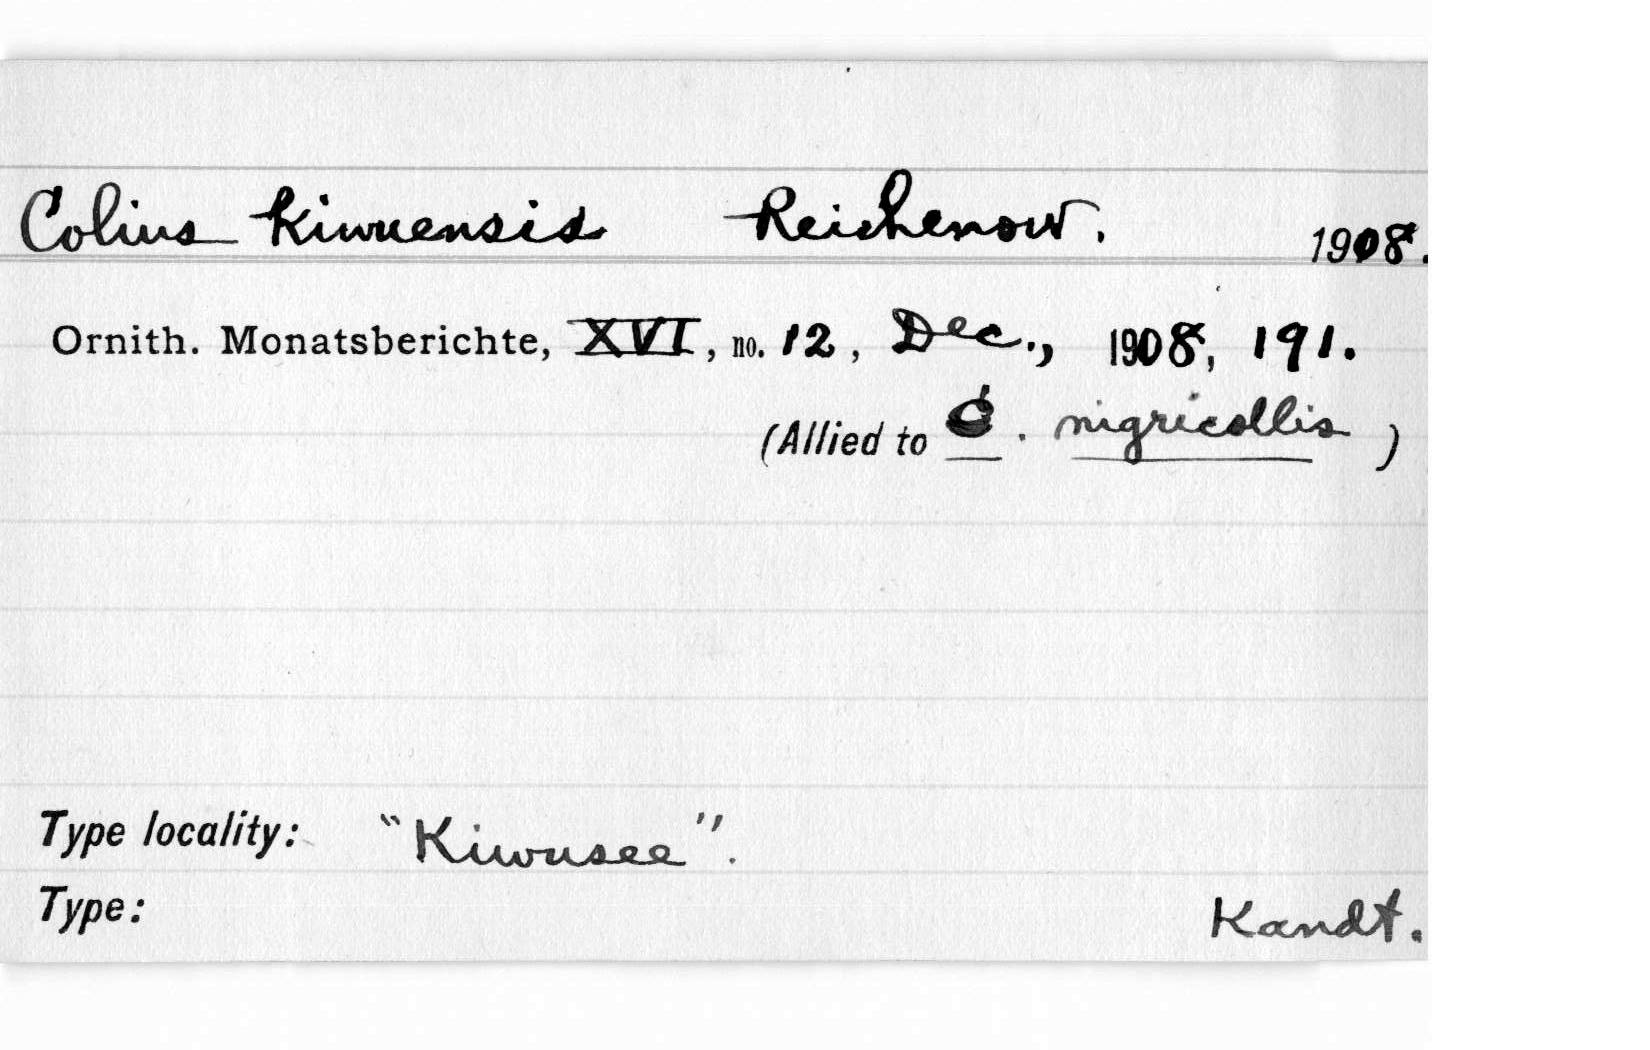 Colius kiwuensis Reichenow. 1908.
Ornith. Monatsberichte, XVI, no. 12, Dec., 1908, 191.
(Allied to C. nigricollis)
Type locality: "Kiwusee".
Type: Kandt.